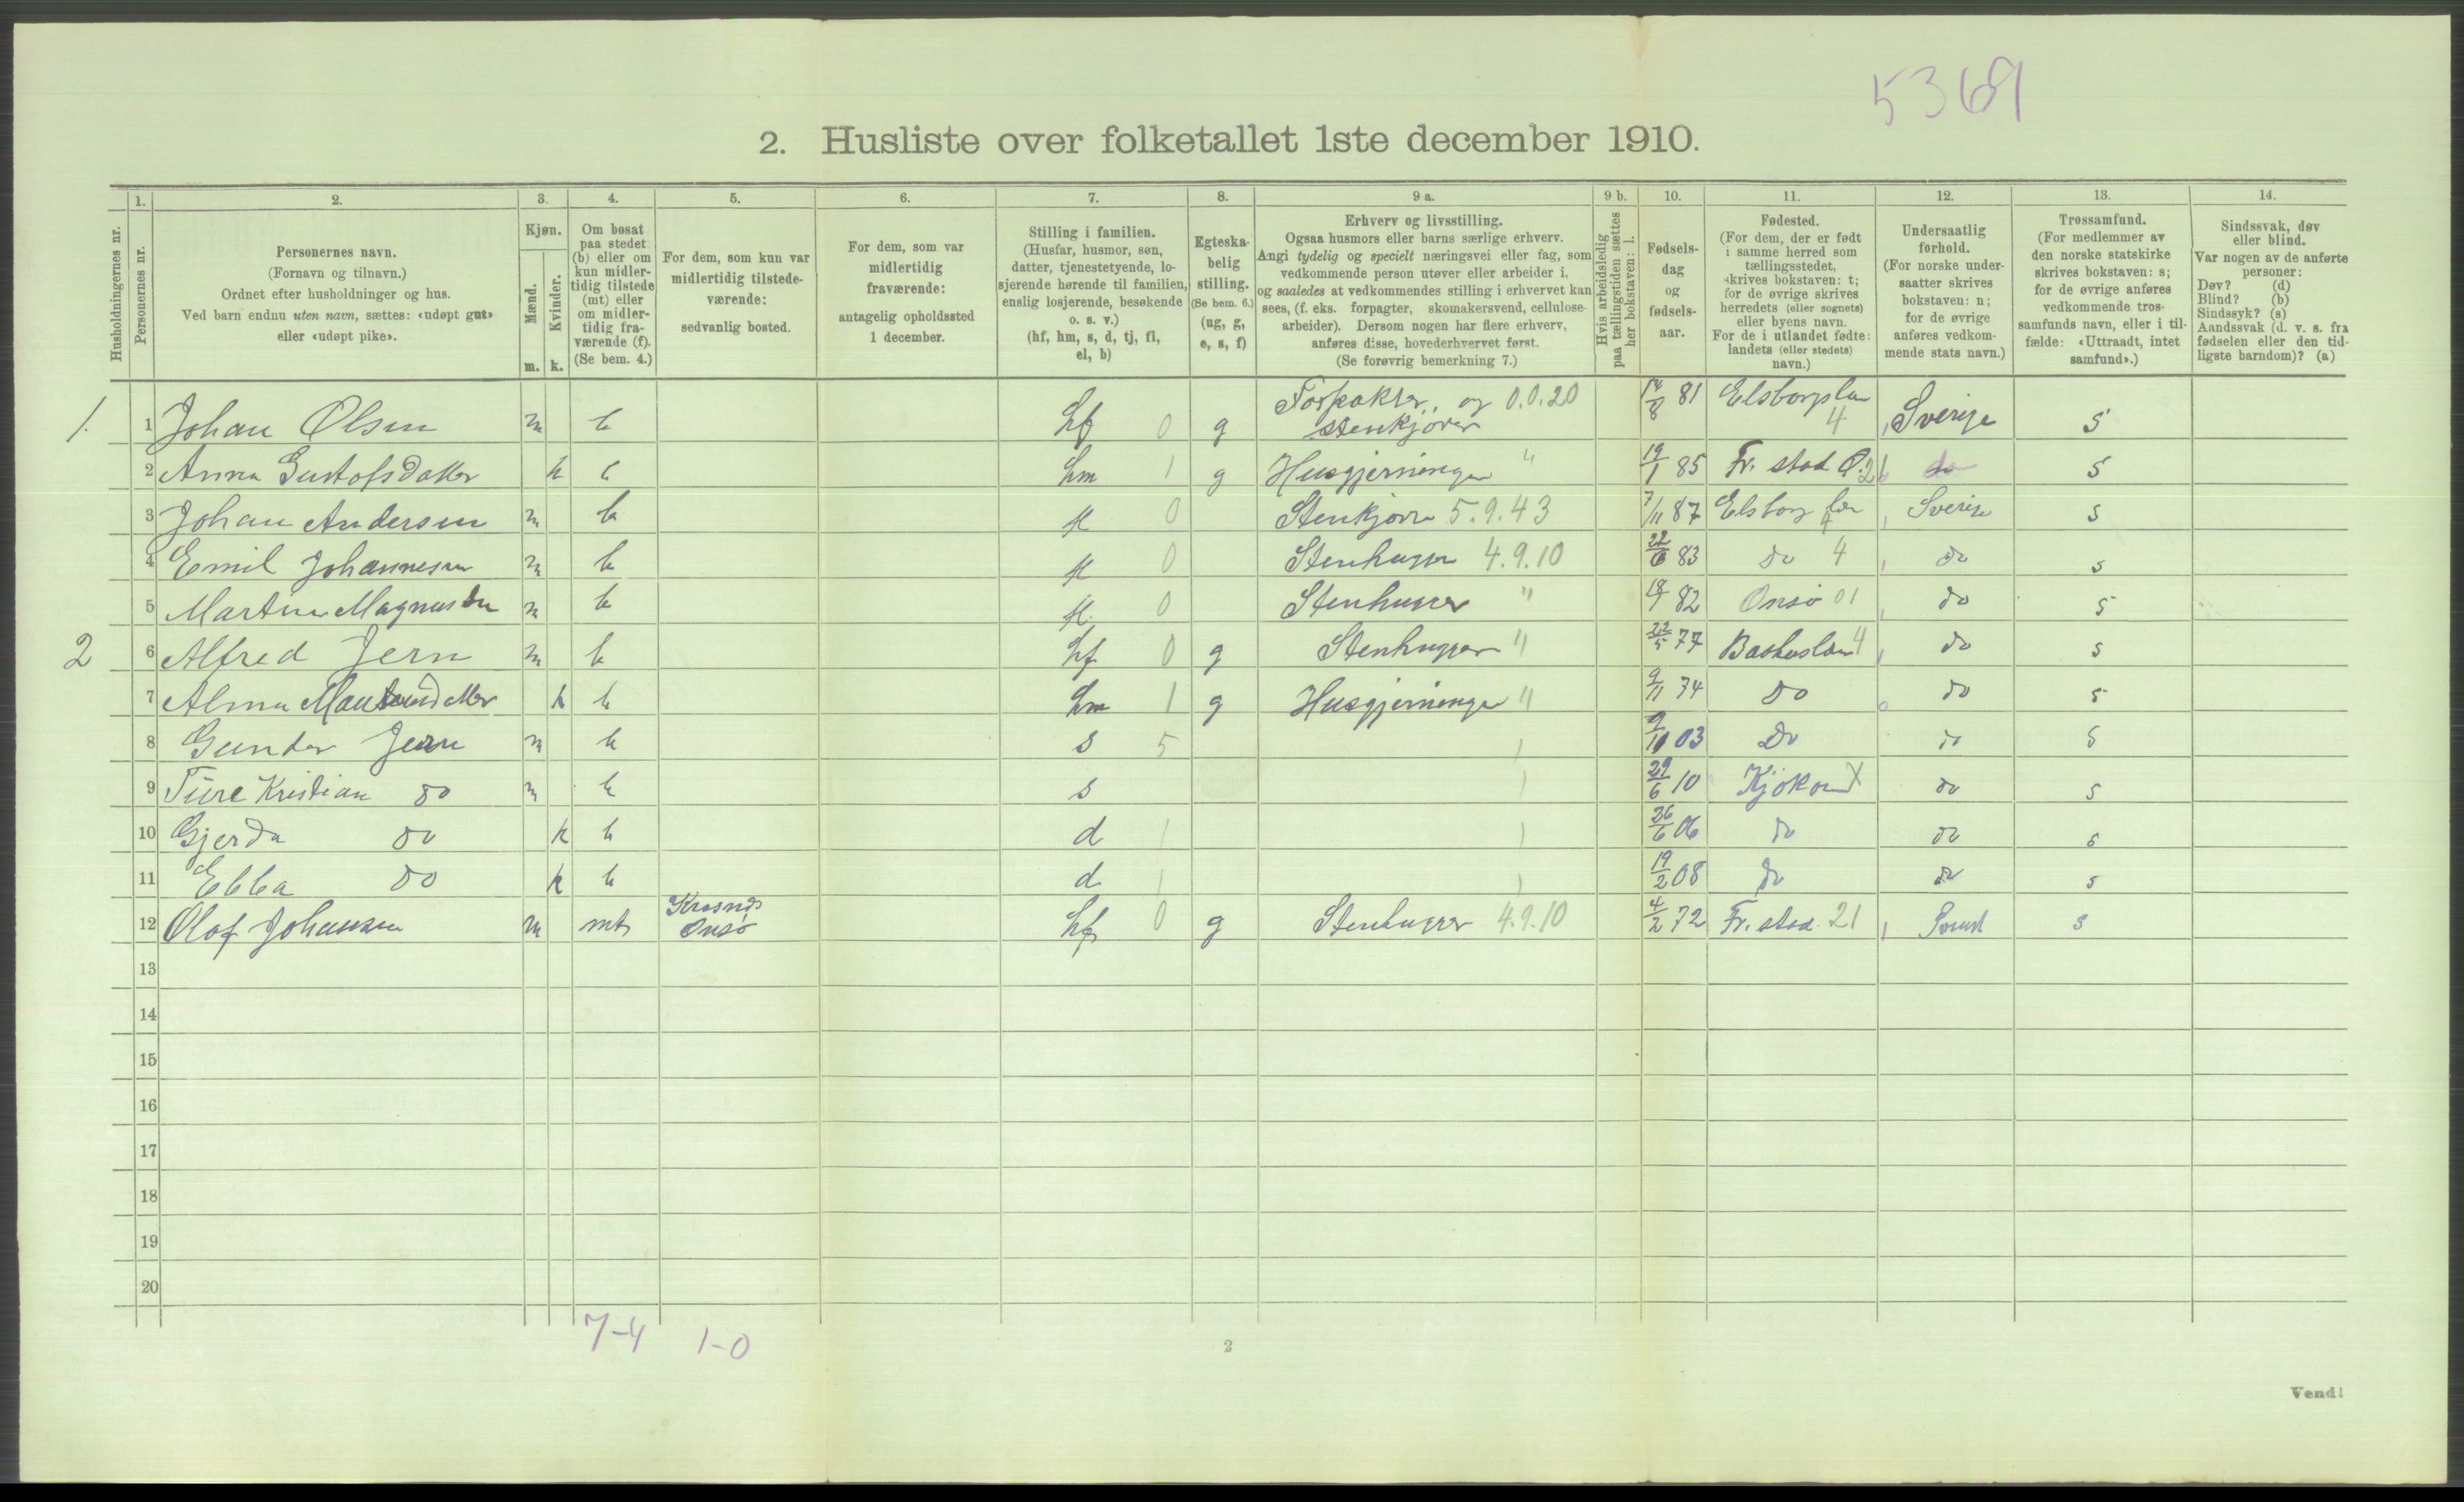 5369
2. Husliste over folketallet 1ste december 1910.
Husholdningernes nr.
1. Personernes nr.
2. Personernes navn.
(Fornavn og tilnavn.)
Ordnet efter husholdninger og hus.
Ved barn endnu uten navn, sættes: «udøpt gut»
eller «udøpt pike».
3. Kjøn.
Mænd. m.
Kvinder. k.
4. Om bosat
paa stedet
(b) eller om
kun midler-
tidig tilstede
(mt) eller
om midler-
tidig fra-
værende (f).
(Se bem. 4.)
5. For dem, som kun var
midlertidig tilstede-
værende:
sedvanlig bosted.
6. For dem, som var
midlertidig
fraværende:
antagelig opholdssted
1 december.
7. Stilling i familien.
(Husfar, husmor, søn,
datter, tjenestetyende, lo-
sjerende hørende til familien,
enslig losjerende, besøkende
o. s. v.)
(hf, hm, s, d, tj, fl,
el, b)
8. Egteska-
belig
stilling.
(Se bem. 6.)
(ug, g,
e, s, f)
9 a. Erhverv og livsstilling.
Ogsaa husmors eller barns særlige erhverv.
Angi tydelig og specielt næringsvei eller fag, som
vedkommende person utøver eller arbeider i,
og saaledes at vedkommendes stilling i erhvervet kan
sees, (f. eks. forpagter, skomakersvend, cellulose-
arbeider). Dersom nogen har flere erhverv,
anføres disse, hovederhvervet først.
(Se forøvrig bemerkning 7.)
9 b. Hvis arbeidsledig
paa tællingstiden sættes
her bokstaven: l.
10. Fødsels-
dag
og
fødsels-
aar.
11. Fødested.
(For dem, der er født
i samme herred som
tællingsstedet,
skrives bokstaven: t;
for de øvrige skrives
herredets (eller sognets)
eller byens navn.
For de i utlandet fødte:
landets (eller stedets)
navn.)
12. Undersaatlig
forhold.
(For norske under-
saatter skrives
bokstaven: n;
for de øvrige
anføres vedkom-
mende stats navn.)
13. Trossamfund.
(For medlemmer av
den norske statskirke
skrives bokstaven: s;
for de øvrige anføres
vedkommende tros-
samfunds navn, eller i til-
fælde: «Uttraadt, intet
samfund».)
14. Sindssvak, døv
eller blind.
Var nogen av de anførte
personer:
Døv? (d)
Blind? (b)
Sindssyk? (s)
Aandssvak (d. v. s. fra
fødselen eller den tid-
ligste barndom)? (a)
1. 1 Johan Olsen m b hf 0 g Forpakter og stenkjører 0.0.20 14/8 81 Elsborgslen 4 Sverige s
2 Anna Gustafsdatter k b hm 1 g Husgjerninger " 19/1 85 Fr. stad Ø. 21 do s
3 Johan Andersen m b fl 0 Stenkjører 5.9.43 7/11 87 Elsborg len 4 Sverige s
4 Emil Johannesen m b fl 0 Stenhugger 4.9.10 22/6 83 do 4 do s
5 Martin Magnussen m b fl 0 Stenhugger " 82 Onsø 01 do s
2 6 Alfred Jern m b hf 0 g Stenhugger " 22/5 77 Baahuslen 4 do s
7 Alma k b hm 1 g Husgjerninger " 9/11 74 do do s
8 Gunder Jern m b s 5 9/10 03 do do s
9 Ture Kristian do m b s 29/6 10 Kjøkøen X do s
10 Gjerda do k b d 1 26/6 06 do do s
11 Ebba do k b d 1 19/2 08 do do s
12 Olaf Johansen m mt Krosnes Onsø hf 0 g Stenhugger 4.9.10 4/2 72 Fr. stad 21 Svensk s
13
14
15
16
17
18
19
20
7-4 1-0
2
Vend!